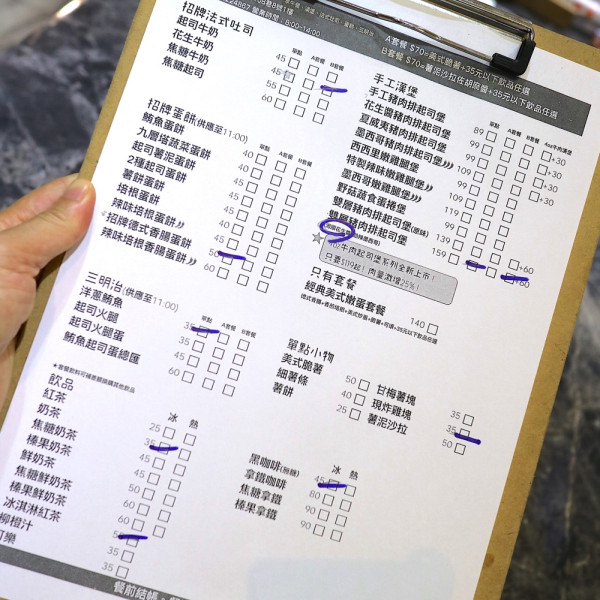 招牌法式吐司
單點 A套餐 B套餐
起司牛奶 45
花生牛奶 45
焦糖牛奶 55
焦糖起司 60
招牌蛋餅(供應至11:00)
單點 A套餐 B套餐
鮪魚蛋餅 40
九層塔蔬菜蛋餅 40
起司薯泥蛋餅 40
2種起司蛋餅 40
薯餅蛋餅 45
培根蛋餅 45
辣味培根蛋餅 45
招牌德式香腸蛋餅 50
辣味培根香腸蛋餅 60
三明治(供應至11:00)
單點 A套餐 B套餐
洋蔥鮪魚 35
起司火腿 35
起司火腿蛋 45
鮪魚起司蛋總匯 60
飲品
冰 熱
紅茶 25
奶茶 35
焦糖奶茶 45
榛果奶茶 45
鮮奶茶 45
焦糖鮮奶茶 60
榛果鮮奶茶 60
冰淇淋紅茶
柳橙汁 35
可樂 35
餐前結帳
營業時間:8:00~14:00
A套餐 $70=美式脆薯+35元以下飲品任選
B套餐 $70=薯泥沙拉佐胡麻醬+35元以下飲品任選
手工漢堡
單點 A套餐 B套餐 4oz牛肉漢堡
手工豬肉排起司堡 89 +30
花生醬豬肉排起司堡 99 +30
夏威夷豬肉排起司堡 99 +30
墨西哥豬肉排起司堡 99 +30
西西里嫩雞腿堡 99
特製辣味嫩雞腿堡 109
墨西哥嫩雞腿堡 109
野菇蔬食蛋捲堡 119
雙層豬肉排起司堡(原味) 139 +60
雙層豬肉排起司堡 159 +60
4oz牛肉起司堡系列全新上市!
只要$119起!肉量激增25%!
只有套餐
經典美式嫩蛋套餐 140
單點小物
美式脆薯 50
細薯條 40
薯餅 25
甘梅薯塊 35
現炸雞塊 35
薯泥沙拉 50
冰 熱
黑咖啡(無糖) 45
拿鐵咖啡 80
焦糖拿鐵 90
榛果拿鐵 90